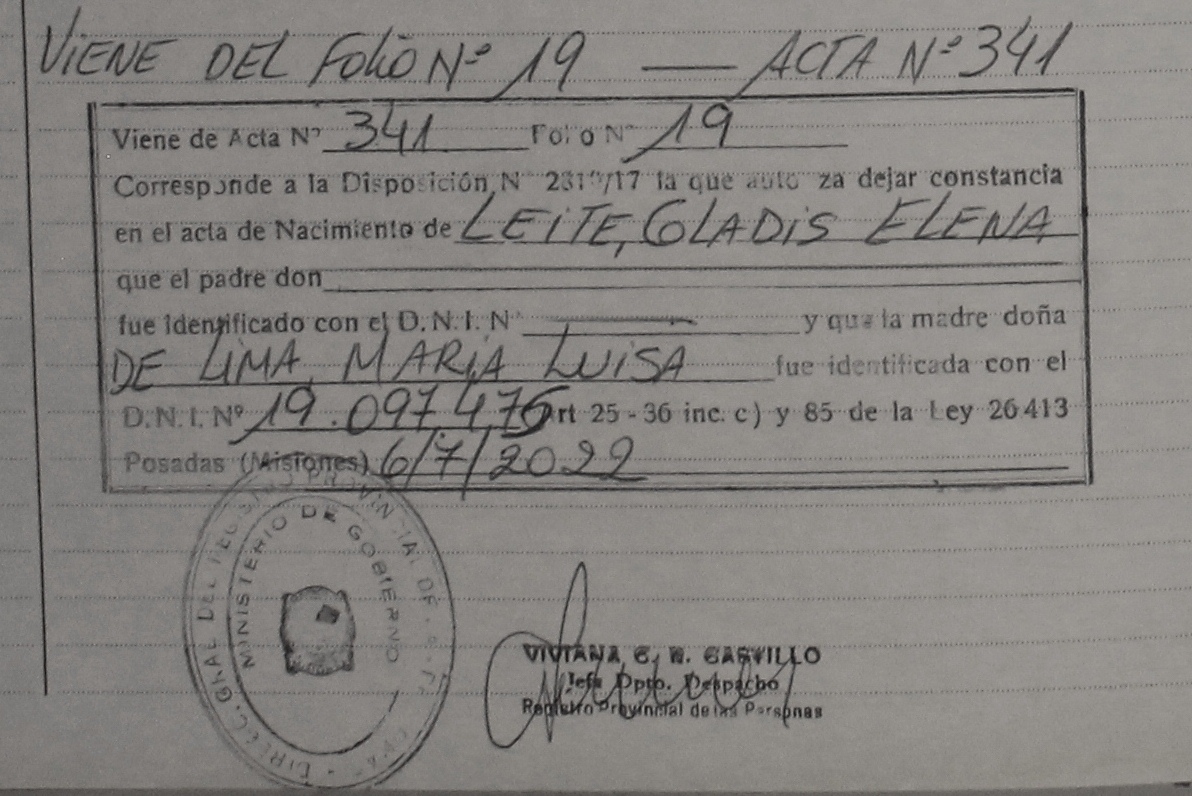 VIENE DEL FOLIO Nº 19 — ACTA Nº 341
Viene de Acta Nº 341 Folio Nº 19
Corresponde a la Disposición Nº /17 la que autoriza dejar constancia
en el acta de Nacimiento de LEITE, GLADIS ELENA
que el padre don
fue identificado con el D.N.I. Nº — y que la madre doña
DE LIMA, MARIA LUISA fue identificada con el
D.N.I. Nº 19.097.476 Art 25 - 36 inc. c) y 85 de la Ley 26413
Posadas (Misiones) 6/7/2022
DIRECC. GRAL DEL REGISTRO PROVINCIAL DE
MINISTERIO DE GOBIERNO
VIVIANA
Jefa Dpto. Despacho
Registro Provincial de las Personas